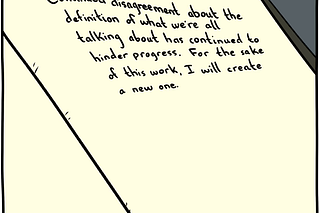 Continued disagreement about the
definition of what we're all
talking about has continued to
hinder progress. For the sake
of this work, I will create
a new one.